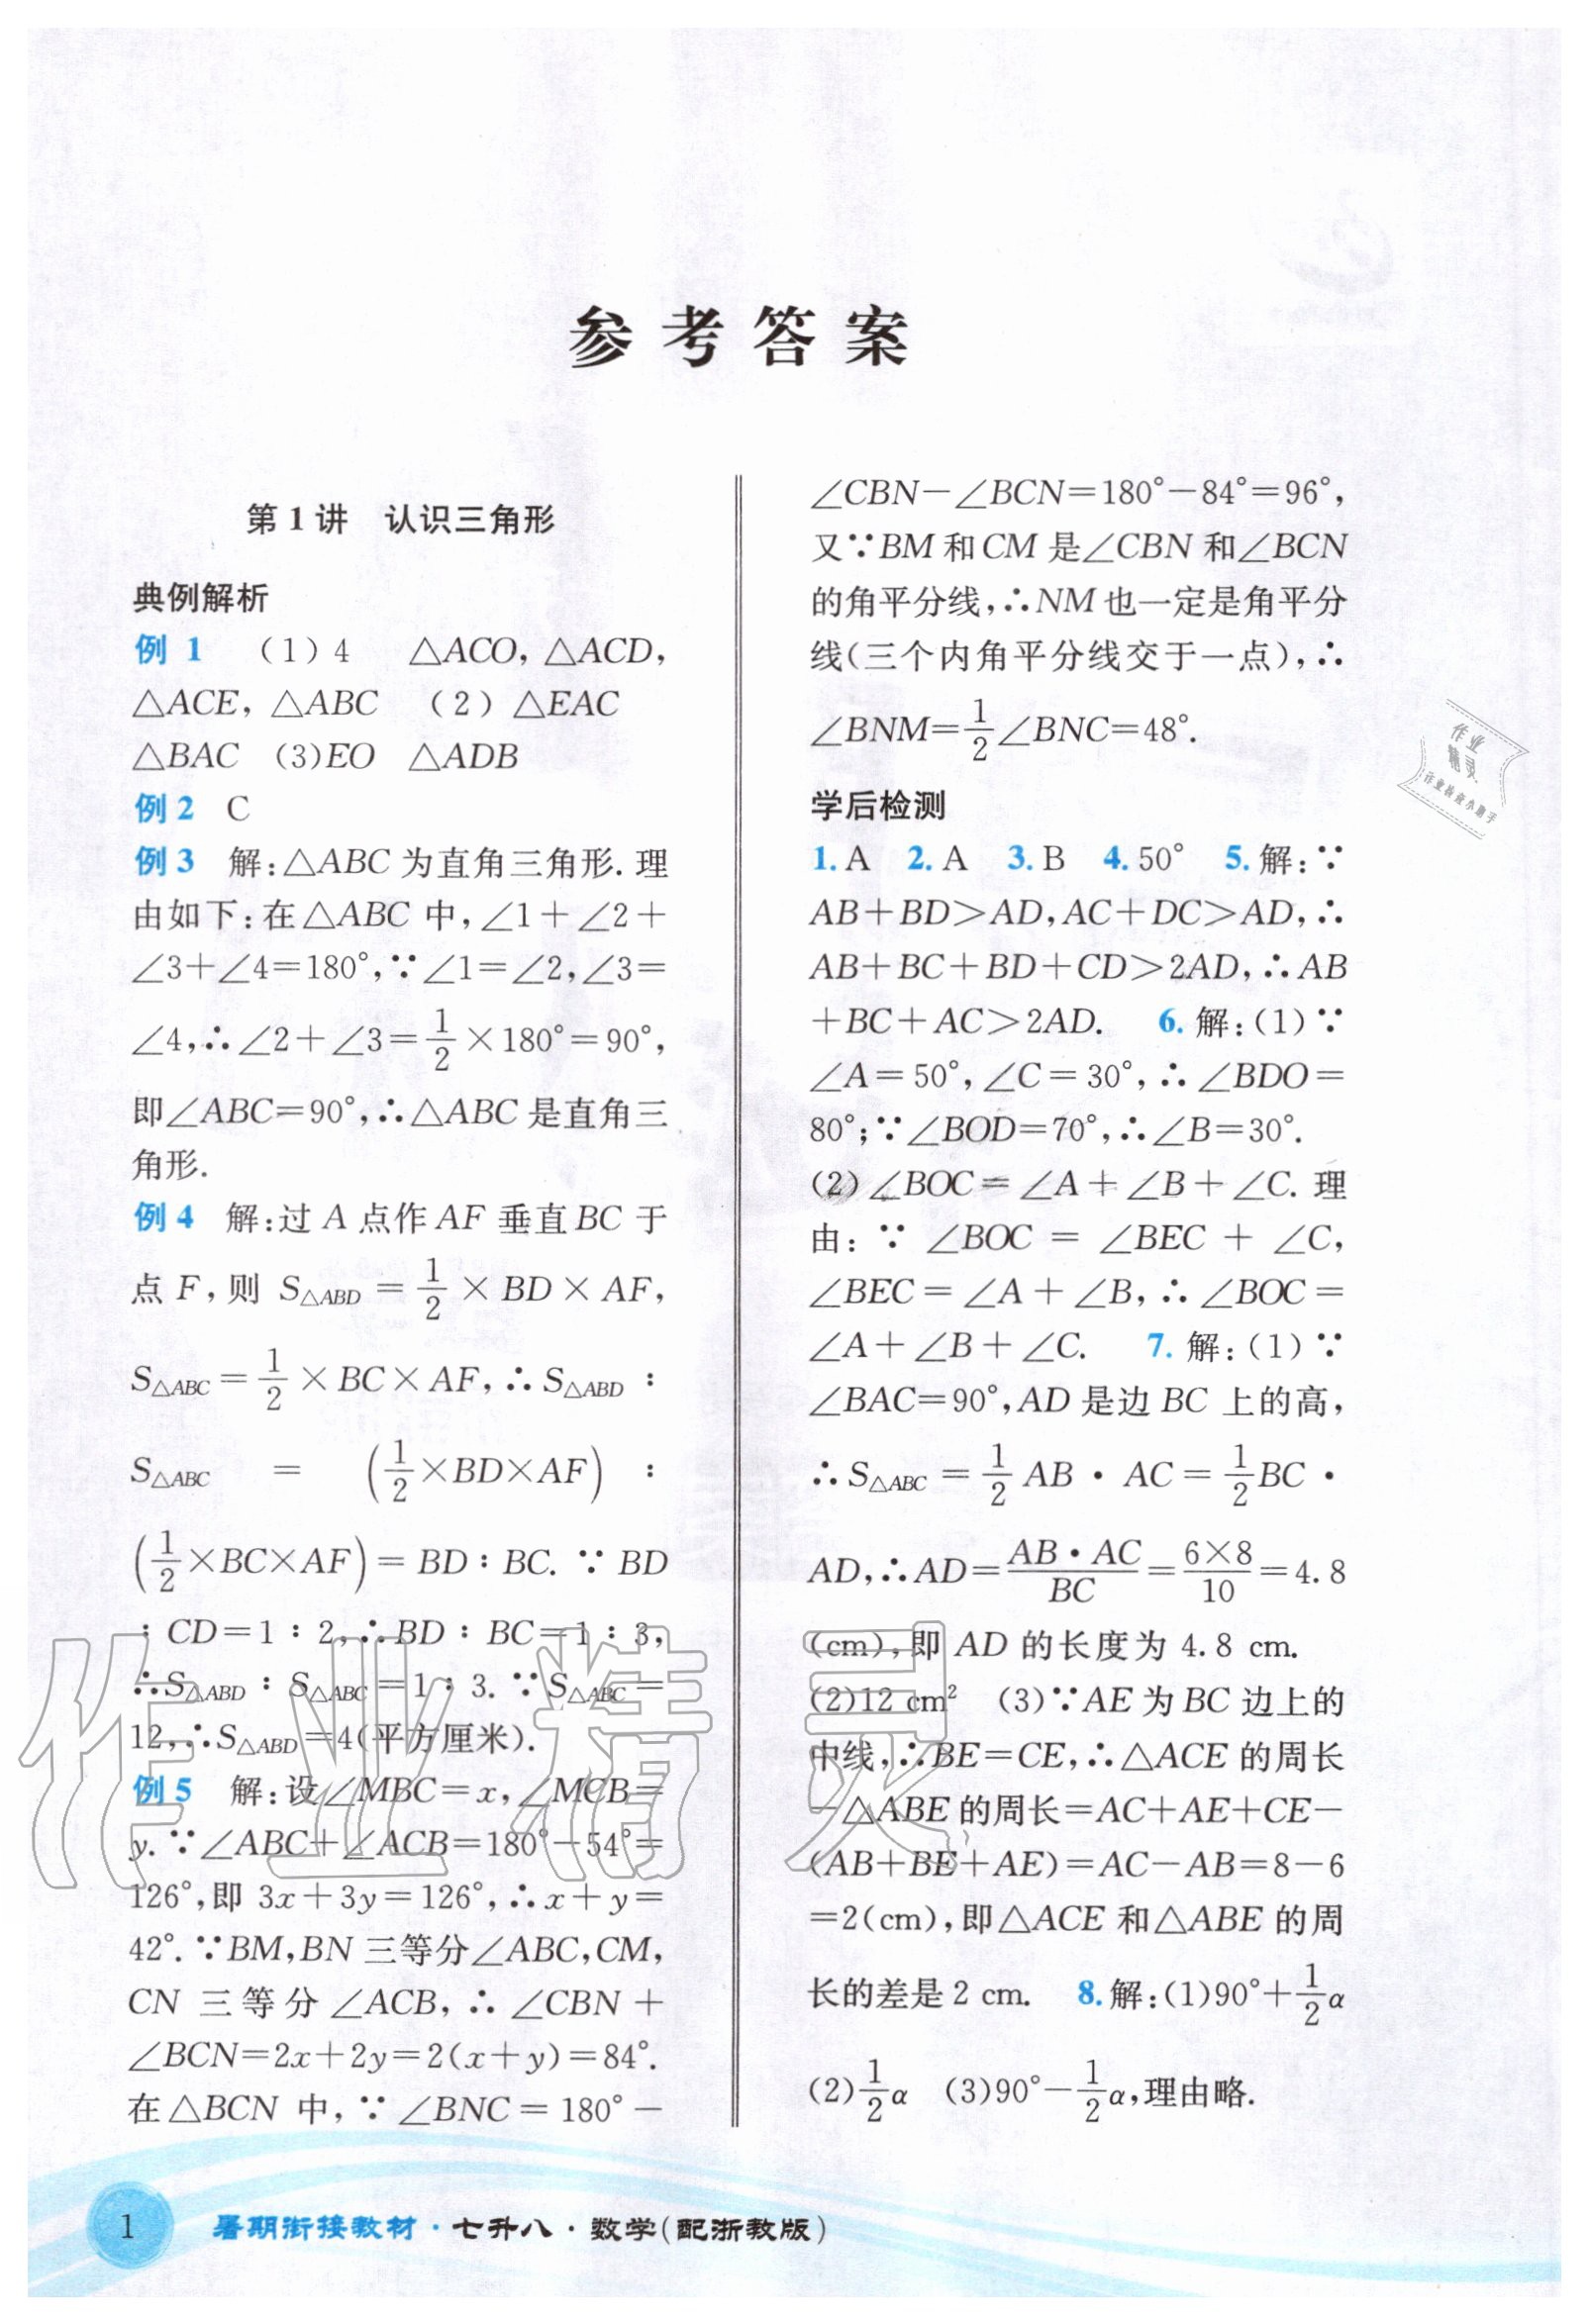 参考答案
第1讲 认识三角形
典例解析
例1 (1)4 △ACO, △ACD,
△ACE, △ABC (2) △EAC
△BAC (3)EO △ADB
例2 C
例3 解:△ABC为直角三角形.理
由如下:在△ABC中,∠1+∠2+
∠3+∠4=180°,∵∠1=∠2,∠3=
∠4,∴∠2+∠3=1/2×180°=90°,
即∠ABC=90°,∴△ABC是直角三
角形.
例4 解:过A点作AF垂直BC于
点F,则 S△ABD=1/2×BD×AF,
S△ABC=1/2×BC×AF,∴S△ABD:
S△ABC = (1/2×BD×AF) :
(1/2×BC×AF)=BD:BC.∵BD
:CD=1:2,∴BD:BC=1:3,
∴S△ABD:S△ABC=1:3.∵S△ABC=
12,∴S△ABD=4(平方厘米).
例5 解:设∠MBC=x,∠MCB=
y.∵∠ABC+∠ACB=180°-54°=
126°,即3x+3y=126°,∴x+y=
42°.∵BM,BN三等分∠ABC,CM,
CN三等分∠ACB,∴∠CBN+
∠BCN=2x+2y=2(x+y)=84°.
在△BCN中,∵∠BNC=180°-
∠CBN-∠BCN=180°-84°=96°,
又∵BM和CM是∠CBN和∠BCN
的角平分线,∴NM也一定是角平分
线(三个内角平分线交于一点),∴
∠BNM=1/2∠BNC=48°.
学后检测
1.A 2.A 3.B 4.50° 5.解:∵
AB+BD>AD,AC+DC>AD,∴
AB+BC+BD+CD>2AD,∴AB
+BC+AC>2AD. 6.解:(1)∵
∠A=50°,∠C=30°,∴∠BDO=
80°;∵∠BOD=70°,∴∠B=30°.
(2)∠BOC=∠A+∠B+∠C.理
由:∵∠BOC=∠BEC+∠C,
∠BEC=∠A+∠B,∴∠BOC=
∠A+∠B+∠C. 7.解:(1)∵
∠BAC=90°,AD是边BC上的高,
∴S△ABC=1/2AB·AC=1/2BC·
AD,∴AD=AB·AC/BC=6×8/10=4.8
(cm),即AD的长度为4.8 cm.
(2)12 cm² (3)∵AE为BC边上的
中线,∴BE=CE,∴△ACE的周长
-△ABE的周长=AC+AE+CE-
(AB+BE+AE)=AC-AB=8-6
=2(cm),即△ACE和△ABE的周
长的差是2 cm. 8.解:(1)90°+1/2α
(2)1/2α (3)90°-1/2α,理由略.
作业
精灵
作业检查小助手
作业精灵
1 暑期衔接教材·七升八·数学(配浙教版)